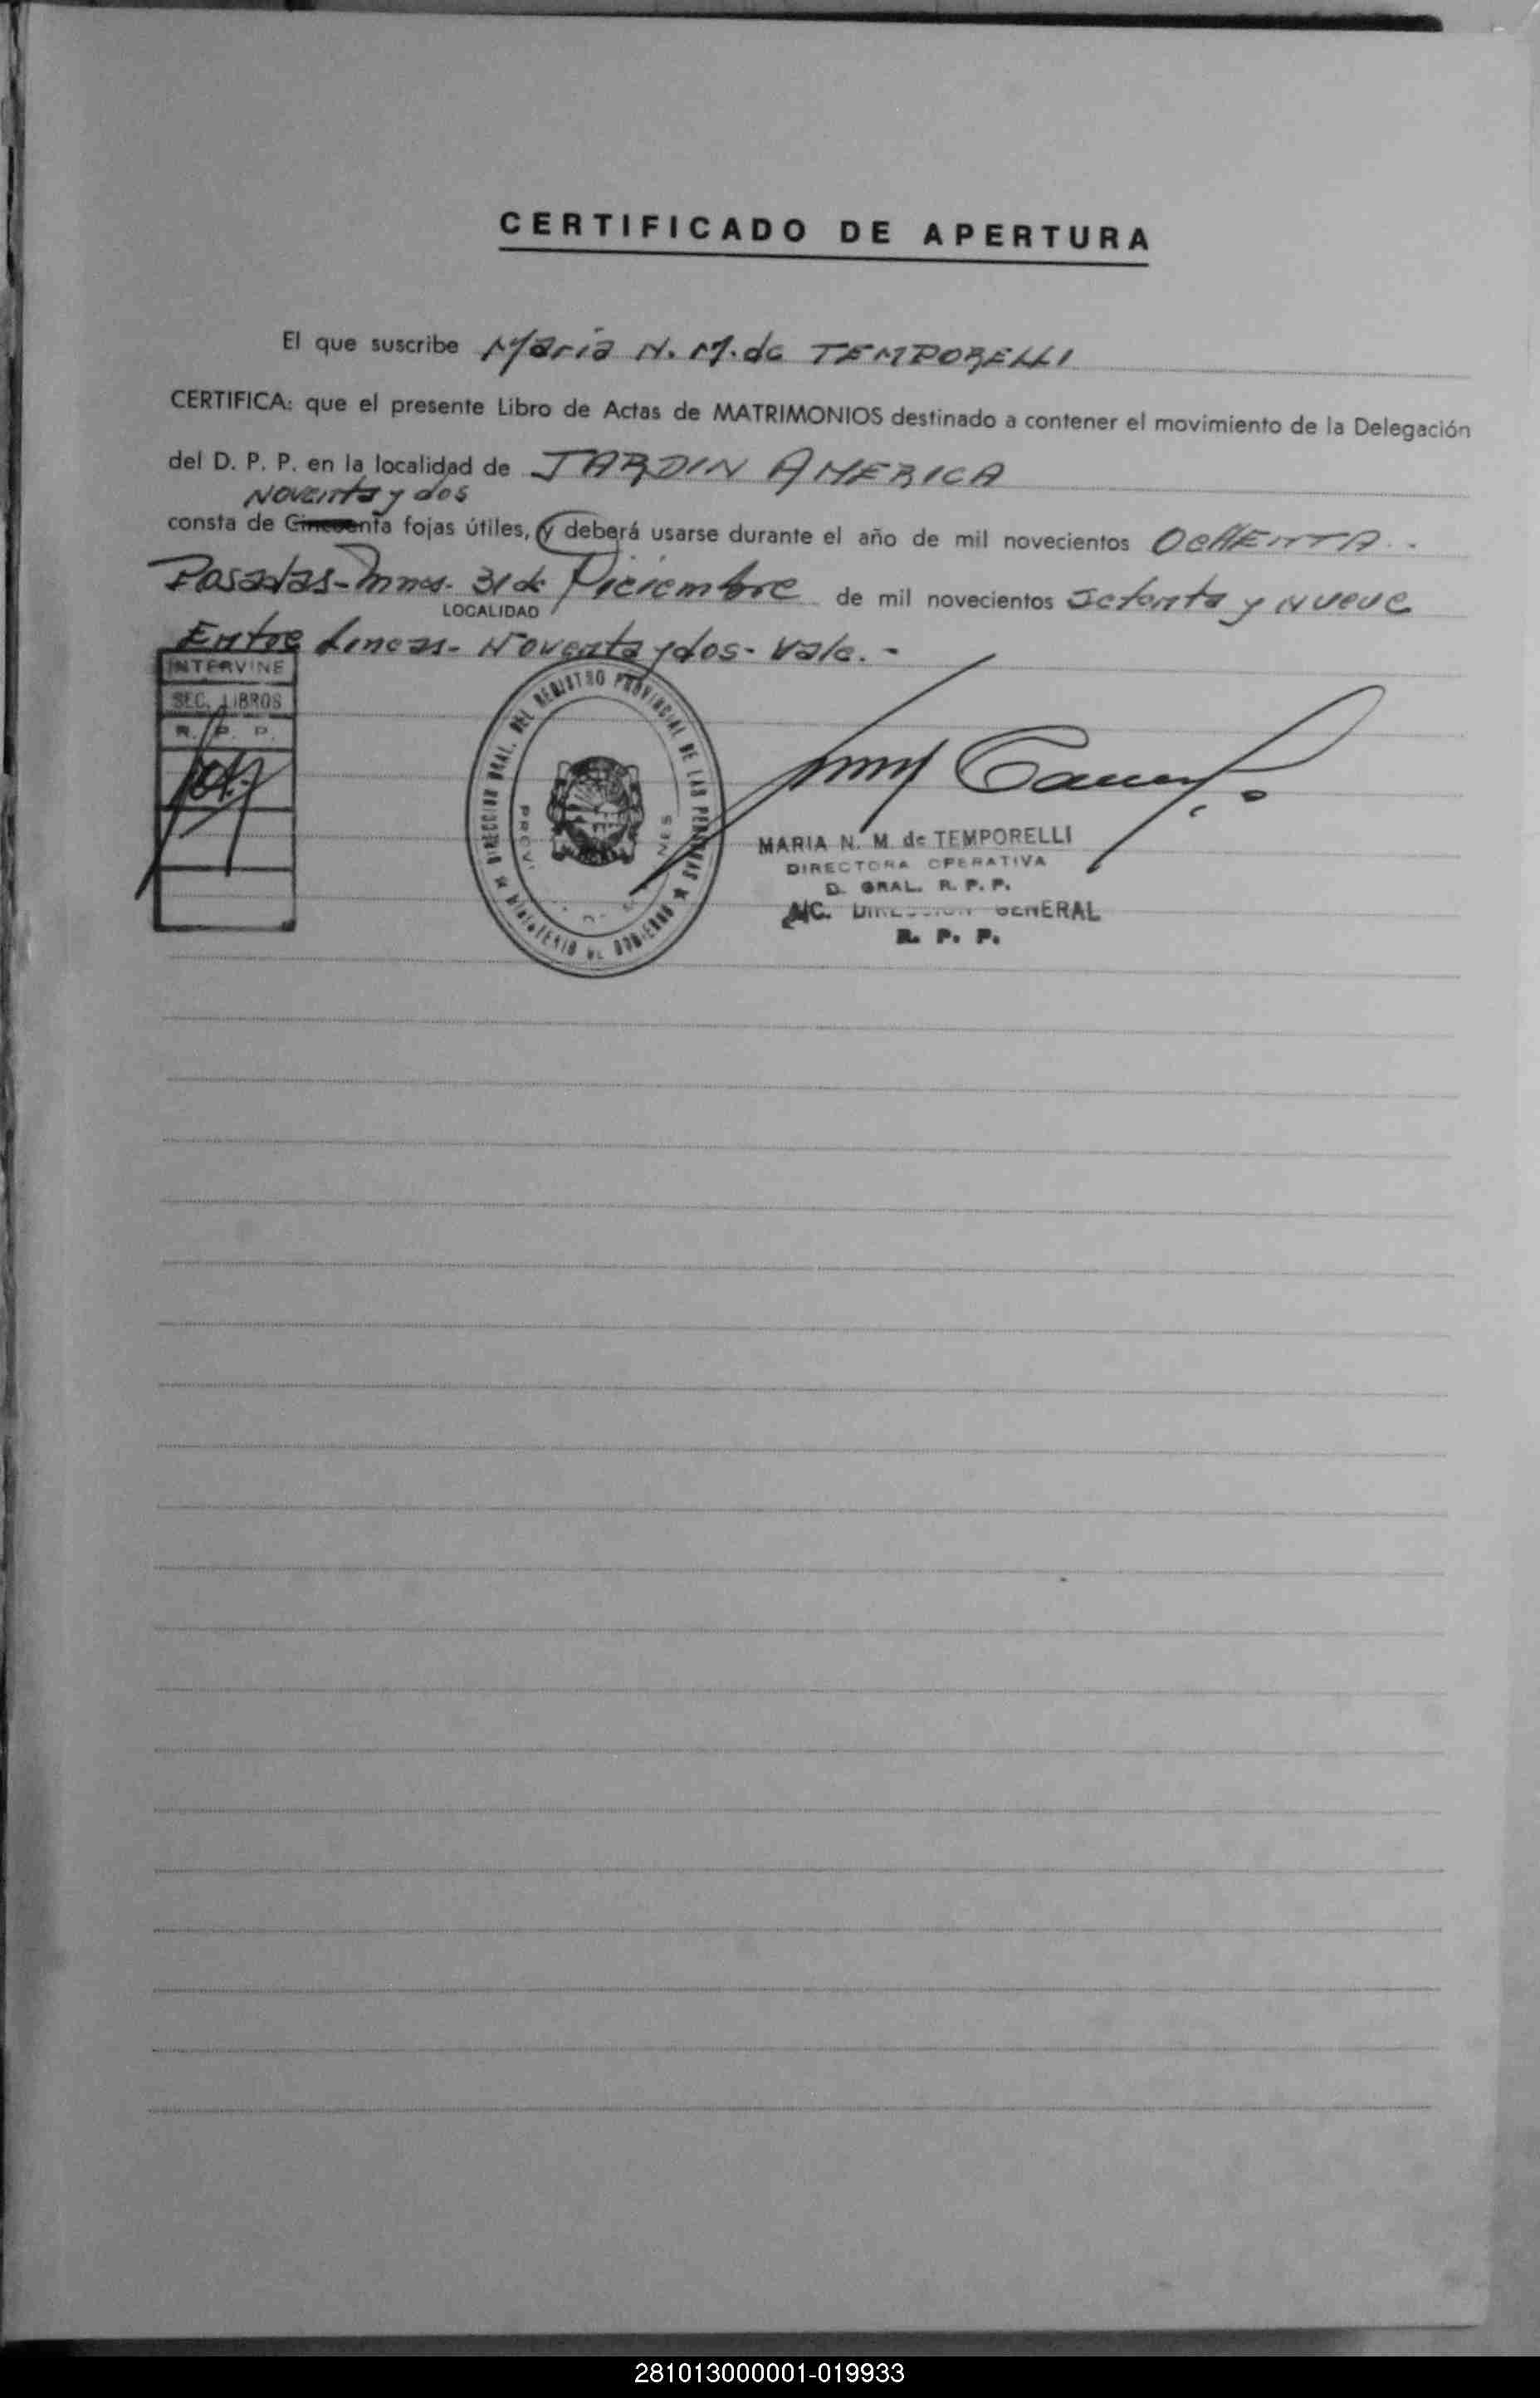 CERTIFICADO DE APERTURA
El que suscribe Maria N. M. de TEMPORELLI
CERTIFICA: que el presente Libro de Actas de MATRIMONIOS destinado a contener el movimiento de la Delegación
del D. P. P. en la localidad de JARDIN AMERICA
Noventa y dos
consta de Cincuenta fojas útiles, y deberá usarse durante el año de mil novecientos OCHENTA.
Posadas-Mnes. 31 de Diciembre de mil novecientos Setenta y Nueve
LOCALIDAD
Entre Lineas- Noventa y dos- Vale.-
INTERVINE
SEC. LIBROS
R. P. P.
DIRECCION GRAL. DEL REGISTRO PROVINCIAL DE LAS PERSONAS
MINISTERIO DE GOBIERNO
MARIA N. M. de TEMPORELLI
DIRECTORA OPERATIVA
D. GRAL. R. P. P.
A/C. DIRECCION GENERAL
R. P. P.
281013000001-019933